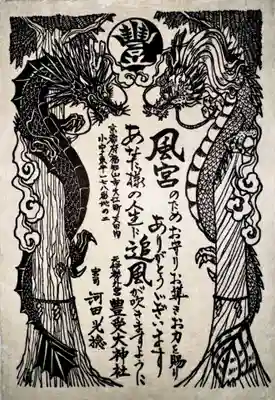 豐
風宮のため
お守りお導きお力を賜り
ありがとうございます
あなた様の人生に追風が吹きますように
京都府福知山市大江町天田内
小字東平一七八番地の二
元伊勢外宮 豊受大神社
宮司 河田光稔